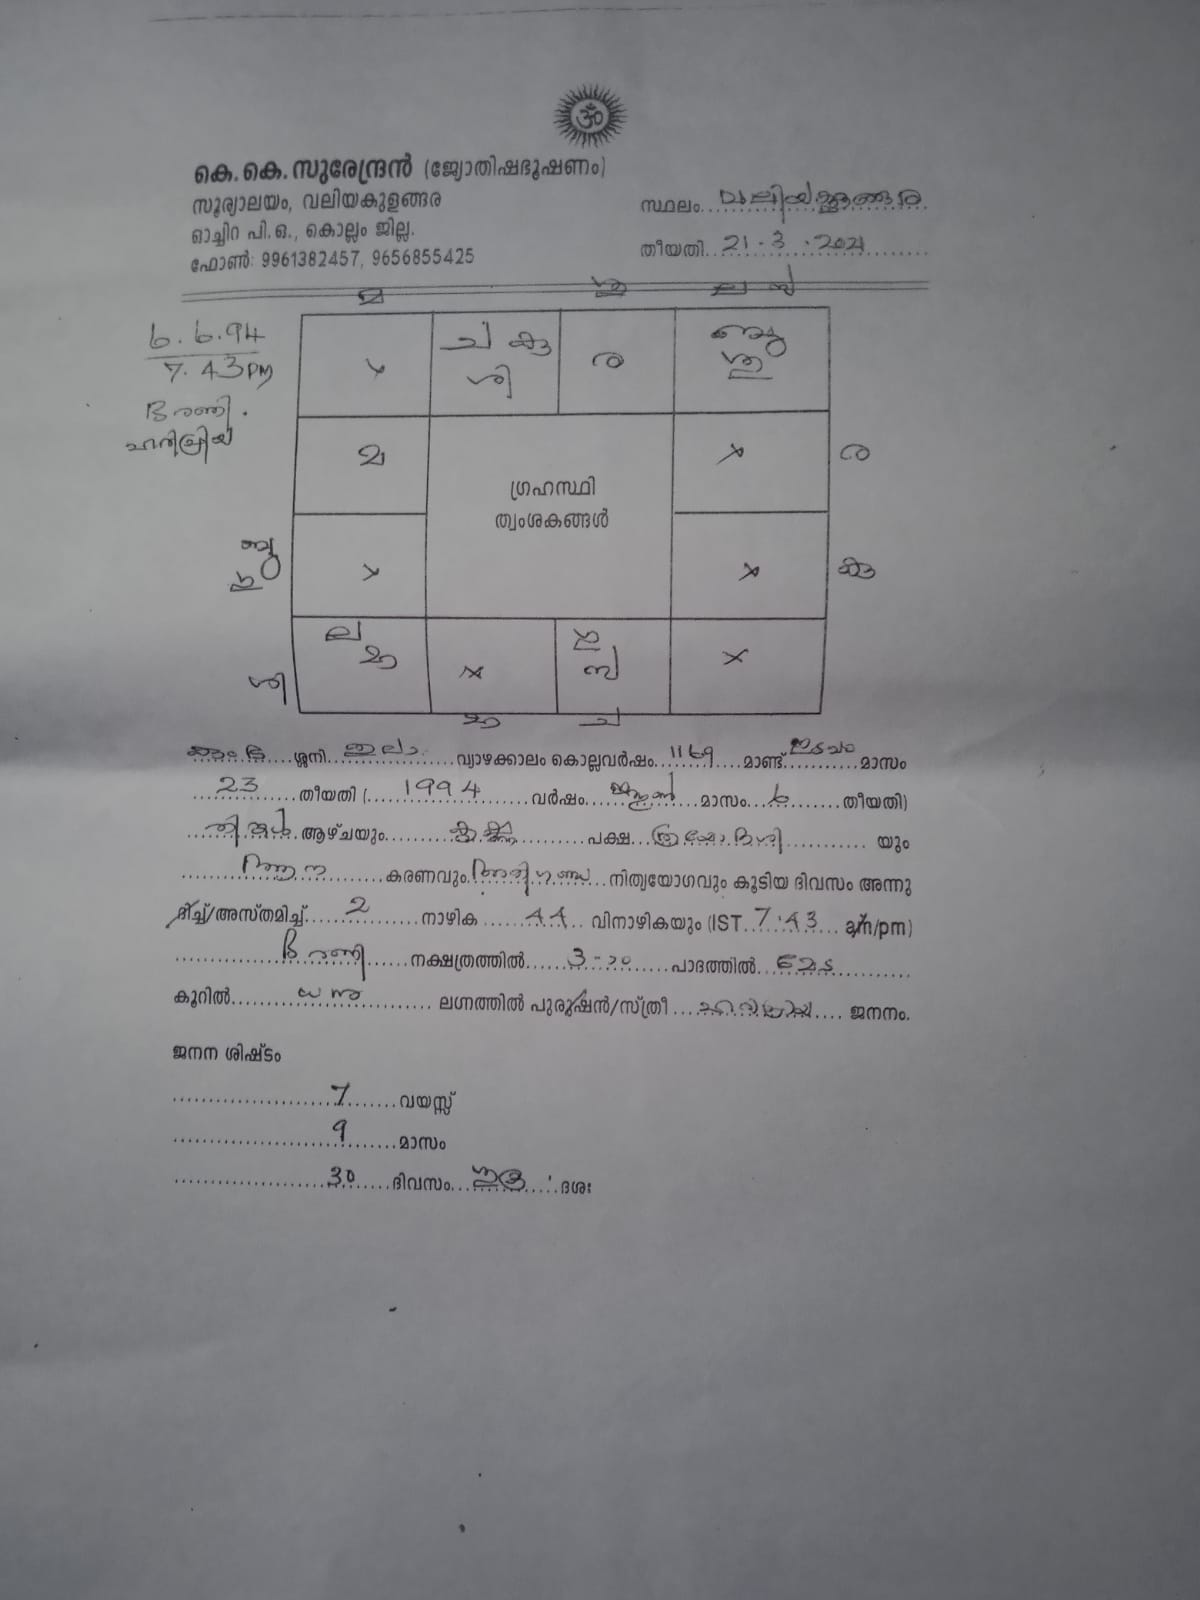 ॐ
കെ. കെ. സുരേന്ദ്രൻ (ജ്യോതിഷഭൂഷണം)
സൂര്യാലയം, വലിയകുളങ്ങര
ഓച്ചിറ പി.ഒ., കൊല്ലം ജില്ല.
ഫോൺ: 9961382457, 9656855425
സ്ഥലം.. വലിയകുളങ്ങര
തീയതി.. 21-3-2021
6.6.94
7.43PM
ഭരണി.
ഹരിപ്രിയ
മ ശു ല സ
x ച കു ര
ശി
മ x ര
ഗ്രഹസ്ഥി
ത്വംശകങ്ങൾ
x x കു
ല x x
ശി
ച
കുംഭ ശ്ശനി തുലാ വ്യാഴക്കാലം കൊല്ലവർഷം 1169 മാണ്ട് ഇടവം മാസം
23 തീയതി (1994 വർഷം ജൂൺ മാസം 6 തീയതി)
തിങ്കൾ ആഴ്ചയും കൃഷ്ണ പക്ഷ ത്രയോദശി യും
കരണവും അതിഗണ്ഡ നിത്യയോഗവും കൂടിയ ദിവസം അന്നു
ദിച്ച്/അസ്തമിച്ച് 2 നാഴിക 44 വിനാഴികയും (IST 7.43 am/pm)
ഭരണി നക്ഷത്രത്തിൽ 3-ാo പാദത്തിൽ മേട
കൂറിൽ ധനു ലഗ്നത്തിൽ പുരുഷൻ/സ്ത്രീ ഹരിപ്രിയ ജനനം.
ജനന ശിഷ്ടം
7 വയസ്സ്
9 മാസം
30 ദിവസം ശുക്ര ദശഃ